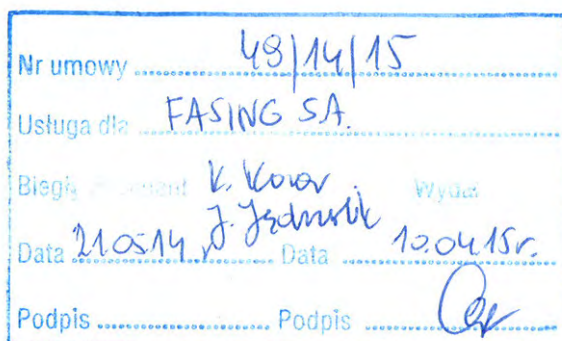 Nr umowy 48/14/15
Usługa dla FASING SA.
Biegły K. Wydał
J.
Data 21.05.14 r Data 10.04.15r.
Podpis Podpis